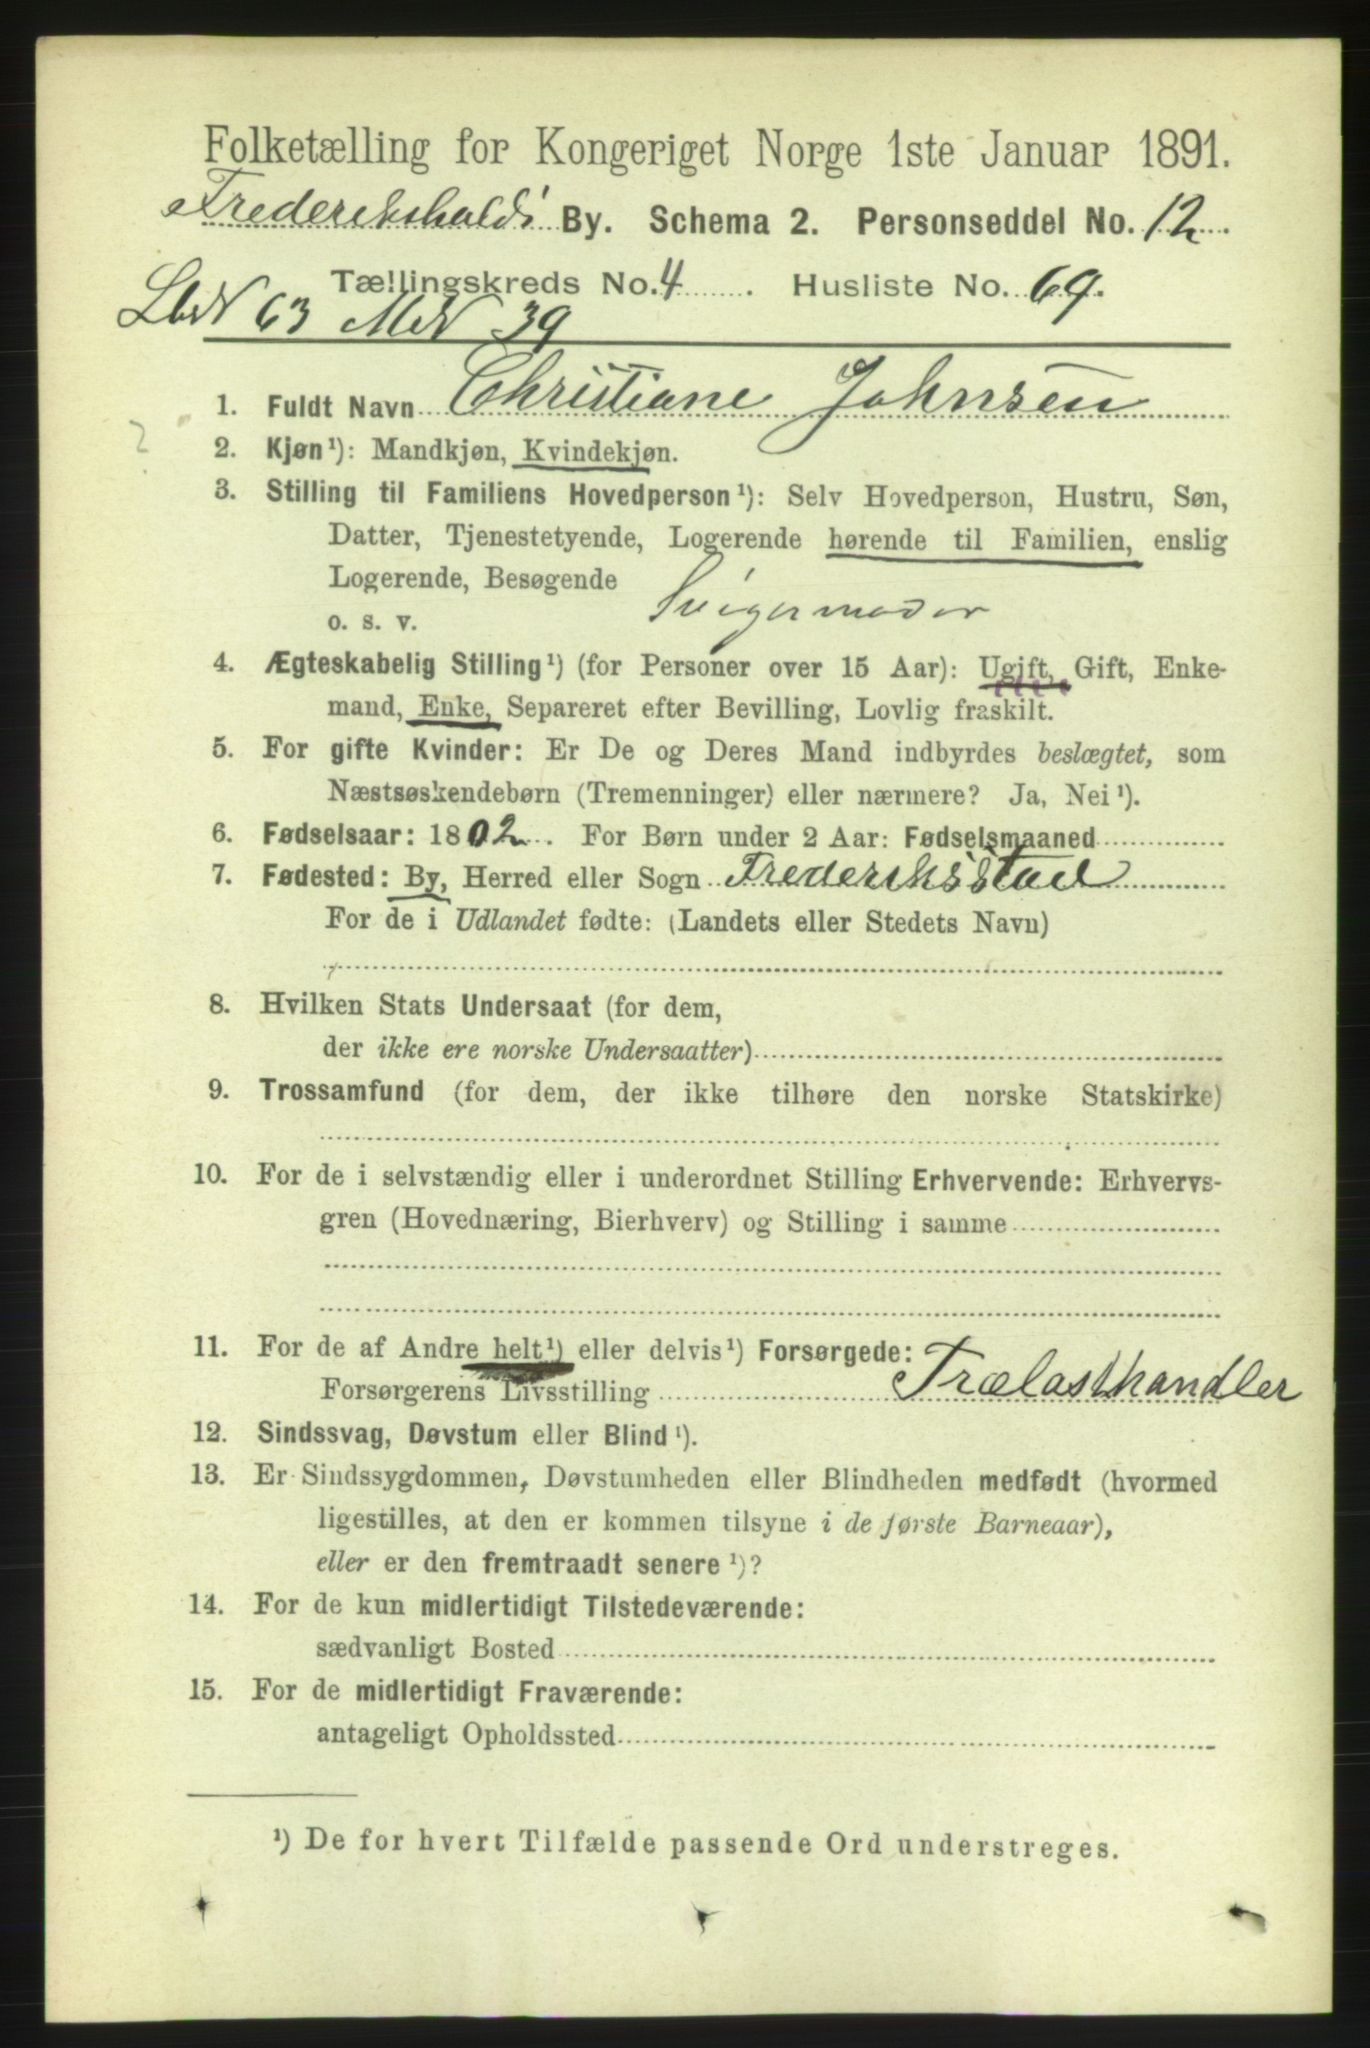 Folketælling for Kongeriget Norge 1ste Januar 1891.
Frederikshalds By. Schema 2. Personseddel No. 12.
Tællingskreds No. 4. Husliste No. 69.
63 39
1. Fuldt Navn Christiane Johnsen
2. Kjøn¹): Mandkjøn, Kvindekjøn.
3. Stilling til Familiens Hovedperson¹): Selv Hovedperson, Hustru, Søn,
Datter, Tjenestetyende, Logerende hørende til Familien, enslig
Logerende, Besøgende
o. s. v. Svigermoder
4. Ægteskabelig Stilling¹) (for Personer over 15 Aar): Ugift, Gift, Enke-
mand, Enke, Separeret efter Bevilling, Lovlig fraskilt.
5. For gifte Kvinder: Er De og Deres Mand indbyrdes beslægtet, som
Næstsøskendebørn (Tremenninger) eller nærmere? Ja, Nei¹).
6. Fødselsaar: 1802. For Børn under 2 Aar: Fødselsmaaned
7. Fødested: By, Herred eller Sogn Frederiksstad
For de i Udlandet fødte: (Landets eller Stedets Navn)
8. Hvilken Stats Undersaat (for dem,
der ikke ere norske Undersaatter)
9. Trossamfund (for dem, der ikke tilhøre den norske Statskirke)
10. For de i selvstændig eller i underordnet Stilling Erhvervende: Erhvervs-
gren (Hovednæring, Bierhverv) og Stilling i samme
11. For de af Andre helt¹) eller delvis¹) Forsørgede:
Forsørgerens Livsstilling Trælasthandler
12. Sindssvag, Døvstum eller Blind¹).
13. Er Sindssygdommen, Døvstumheden eller Blindheden medfødt (hvormed
ligestilles, at den er kommen tilsyne i de første Barneaar),
eller er den fremtraadt senere¹)?
14. For de kun midlertidigt Tilstedeværende:
sædvanligt Bosted
15. For de midlertidigt Fraværende:
antageligt Opholdssted
¹) De for hvert Tilfælde passende Ord understreges.